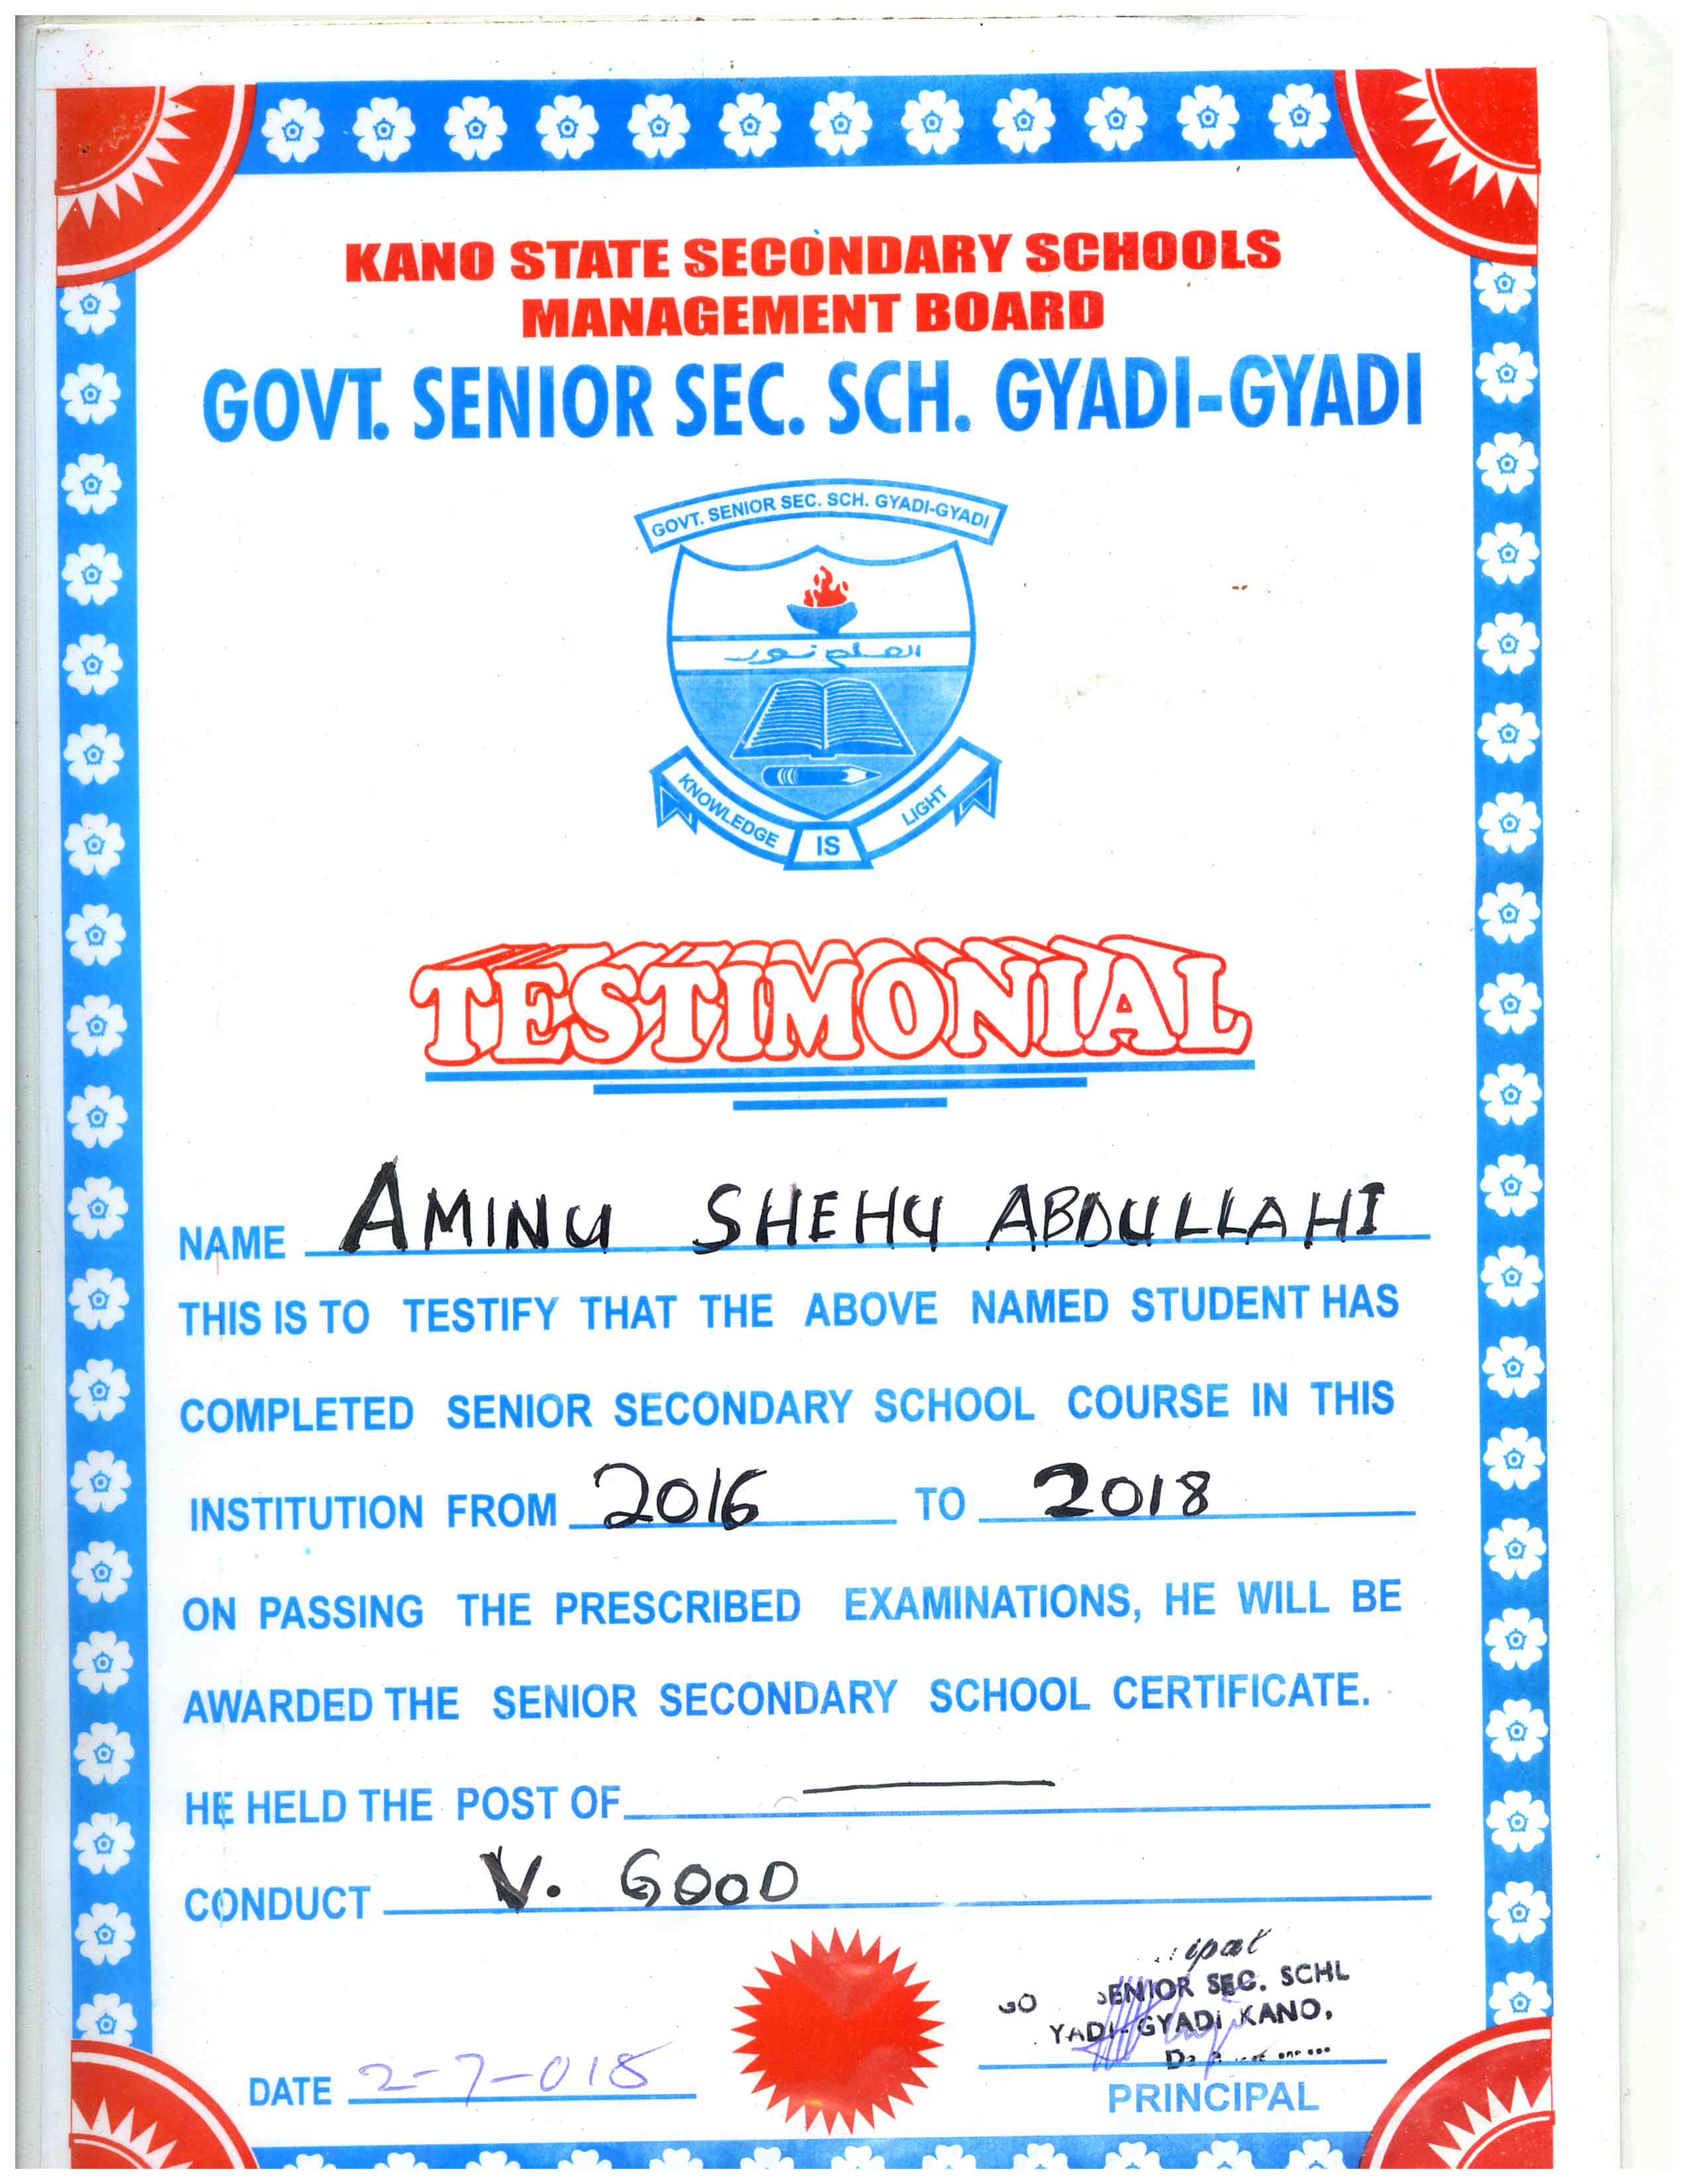 KANO STATE SECONDARY SCHOOLS
MANAGEMENT BOARD
GOVT. SENIOR SEC. SCH. GYADI-GYADI
GOVT. SENIOR SEC. SCH. GYADI-GYADI
العلم نور
KNOWLEDGE IS LIGHT
TESTIMONIAL
NAME AMINU SHEHU ABDULLAHI
THIS IS TO TESTIFY THAT THE ABOVE NAMED STUDENT HAS
COMPLETED SENIOR SECONDARY SCHOOL COURSE IN THIS
INSTITUTION FROM 2016 TO 2018
ON PASSING THE PRESCRIBED EXAMINATIONS, HE WILL BE
AWARDED THE SENIOR SECONDARY SCHOOL CERTIFICATE.
HE HELD THE POST OF
CONDUCT V. GOOD
ipal
SENIOR SEC. SCHL
YADI-GYADI KANO.
DATE 2-7-018
PRINCIPAL